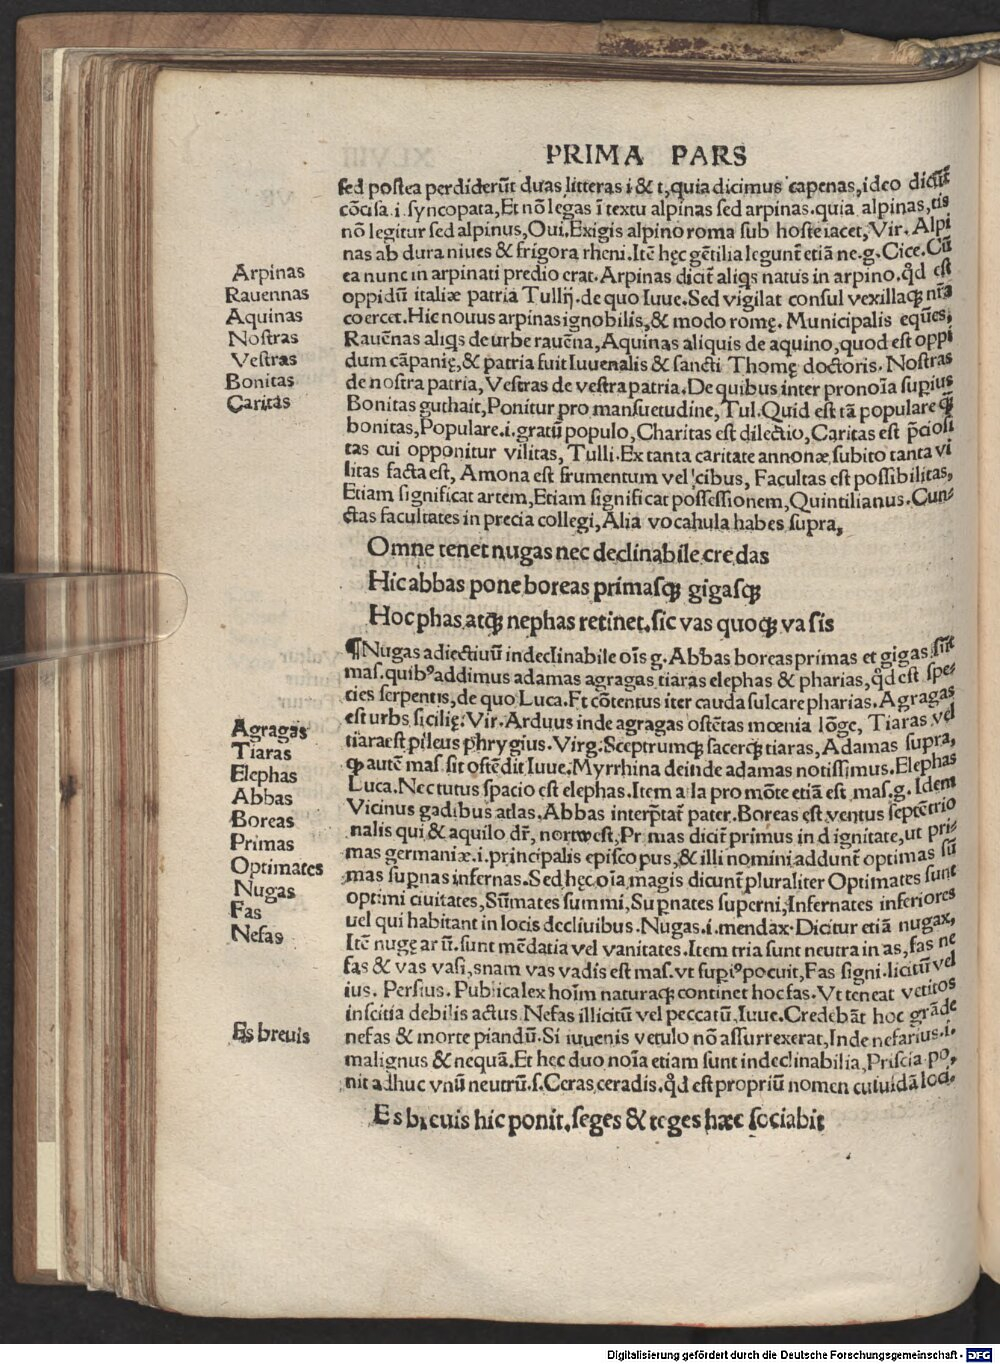 PRIMA PARS
sed postea perdiderũt duas litteras i & t, quia dicimus capenas, ideo dicũt̃
cõcisa .i. syncopata, Et nõ legas ĩ textu alpinas sed arpinas. quia alpinas, tis
nõ legitur sed alpinus, Oui. Exigis alpino roma sub hoste iacet, Vir. Alpi
nas ab dura niues & frigora rheni. Itẽ hęc gẽtilia legunt̃ etiã ne. g. Cice. Cũ
ea nunc in arpinati predio erat. Arpinas dicit̃ aliqs natus in arpino. qd̃ est
oppidũ italiæ patria Tullij. de quo Iuue. Sed vigilat consul vexillaqꝫ nr̃a
coercet. Hic nouus arpinas ignobilis, & modo romę. Municipalis eques,
Rauẽnas aliqs de urbe rauẽna, Aquinas aliquis de aquino, quod est oppi
dum cãpanię, & patria fuit Iuuenalis & sancti Thomę doctoris. Nostras
de nostra patria, Vestras de vestra patria. De quibus inter pronoĩa supius
Bonitas guthait, Ponitur pro mansuetudine, Tul. Quid est tã populare qꝫ̃
bonitas, Populare .i. gratũ populo, Charitas est dilectio, Caritas est p̃ciosi
tas cui opponitur vilitas, Tulli. Ex tanta caritate annonæ subito tanta vi
litas facta est, Amona est frumentum vel cibus, Facultas est possibilitas,
Etiam significat artem, Etiam significat possessionem, Quintilianus. Cun⸗
ctas facultates in precia collegi, Alia vocahula habes supra,
Omne tenet nugas nec declinabile credas
Hic abbas pone boreas primasqꝫ gigasqꝫ
Hoc phas atqꝫ nephas retinet. sic vas quoqꝫ vasis
¶Nugas adiectiuũ indeclinabile oĩs g. Abbas boreas primas et gigas sũt
mas. quibꝰ addimus adamas agragas tiaras elephas & pharias, qd̃ est spe⸗
cies serpentis, de quo Luca. Et cõtentus iter cauda sulcare pharias. Agragas
est urbs sicilię. Vir. Arduus inde agragas ostẽtas mœnia lõge, Tiaras vel
tiara est pileus phrygius. Virg. Sceptrumqꝫ sacerqꝫ tiaras, Adamas supra,
ꝙ autẽ mas. sit ostẽdit Iuue. Myrrhina deinde adamas notissimus. Elephas
Luca. Nec tutus spacio est elephas. Item ala pro mõte etiã est mas. g. Idem
Vicinus gadibus atlas. Abbas interp̃tat̃ pater. Boreas est ventus septẽtrio
nalis qui & aquilo dr̃, nortwest, Primas dicit̃ primus in dignitate, ut pri⸗
mas germaniæ .i. principalis episcopus, & illi nomini addunt̃ optimas sũ
mas sup̃nas infernas. Sed hęc oĩa magis dicunt̃ pluraliter Optimates sunt
optimi ciuitates, Sũmates summi, Sup̃nates superni, Infernates inferiores
uel qui habitant in locis decliuibus. Nugas .i. mendax. Dicitur etiã nugax,
Itẽ nugę arũ. sunt mẽdatia vel vanitates. Item tria sunt neutra in as, fas ne
fas & vas vasi, snam vas vadis est mas. vt supiꝰ pocuit, Fas signi. licitũ vel
ius. Persius. Publica lex hoĩm naturaqꝫ continet hoc fas. Vt teneat vetitos
inscitia debilis actus Nefas illicitũ vel peccatũ, Iuue. Credebãt hoc grãde
nefas & morte piandũ. Si iuuenis vetulo nõ assurrexerat, Inde nefarius .i.
malignus & nequã. Et hec duo noĩa etiam sunt indeclinabilia, Priscia po,
nit adhuc vnũ neutrũ. s. Ceras ceradis. qd̃ est propriũ nomen cuiuidã loci.
Es breuis hic ponit. seges & teges hæc sociabit
Arpinas
Rauennas
Aquinas
Nostras
Vestras
Bonitas
Caritas
Agragas
Tiaras
Elephas
Abbas
Boreas
Primas
Optimates
Nugas
Fas
Nefas
Es breuis
Digitalisierung gefördert durch die Deutsche Forschungsgemeinschaft - DFG